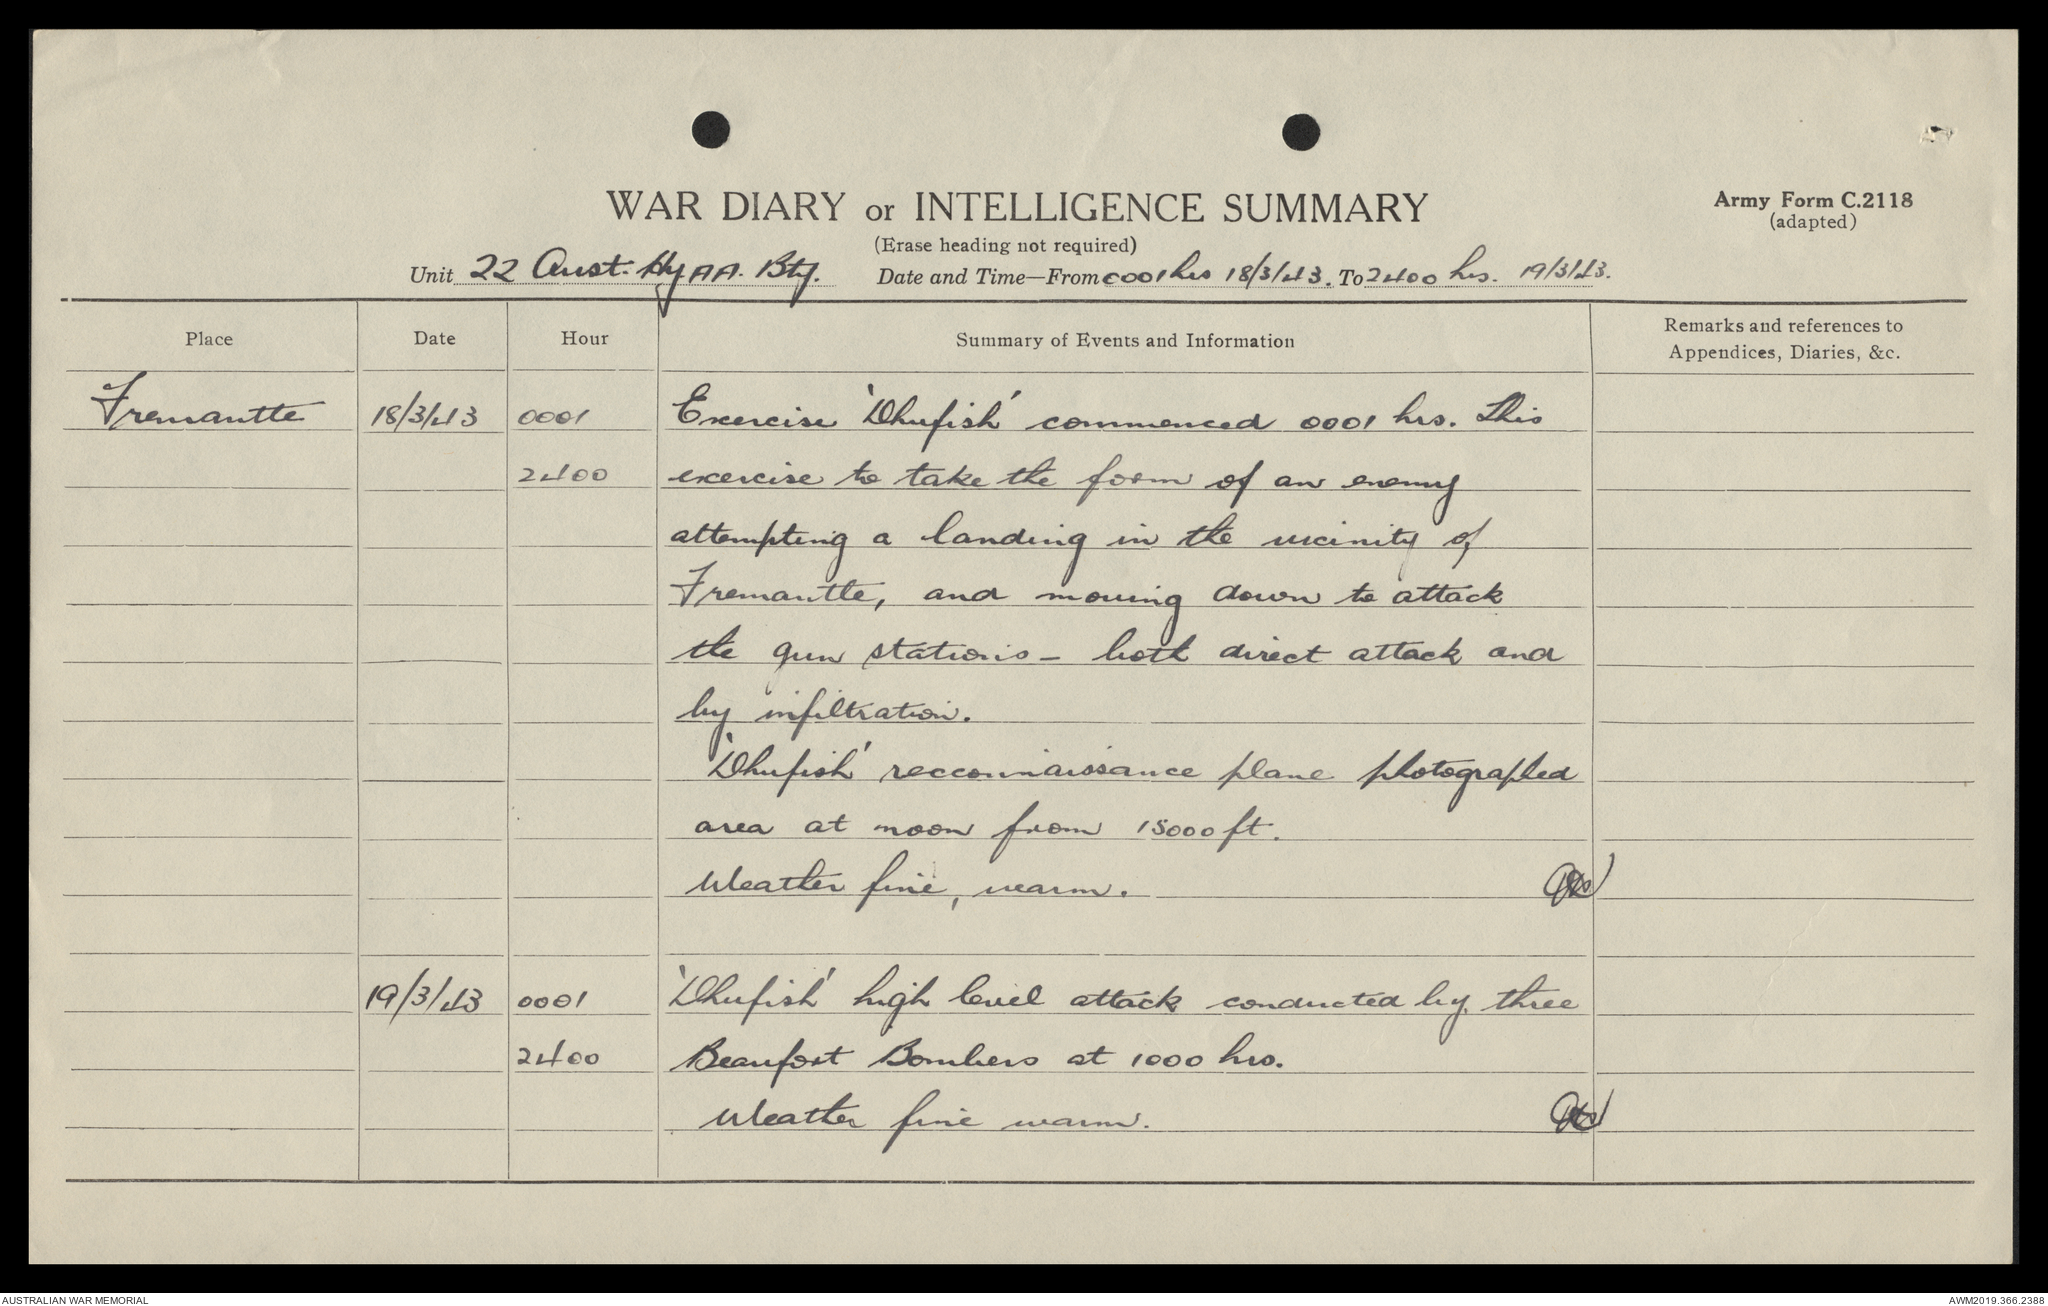 WAR DIARY or INTELLIGENCE SUMMARY
Army Form C.2118
(adapted)
(Erase heading not required)
Unit 22 Aust. Hy AA. Bty. Date and Time—From 0001 hrs 18/3/43. To 2400 hrs. 19/3/43.
Place Date Hour Summary of Events and Information Remarks and references to
Appendices, Diaries, &c.
Fremantle 18/3/43 0001 Exercise 'Dhufish' commenced 0001 hrs. This
2400 exercise to take the form of an enemy
attempting a landing in the vicinity of
Fremantle, and moving down to attack
the gun stations - both direct attack and
by infiltration.
'Dhufish' recconnaissance plane photographed
area at noon from 15000 ft.
Weather fine, warm.
19/3/43 0001 'Dhufish' high level attack conducted by three
2400 Beaufort Bombers at 1000 hrs.
Weather fine warm.
AUSTRALIAN WAR MEMORIAL
AWM2019.366.2388